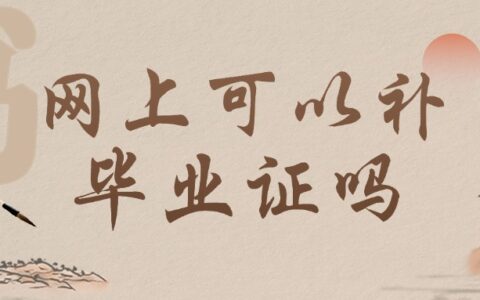 网上可以补
毕业证吗